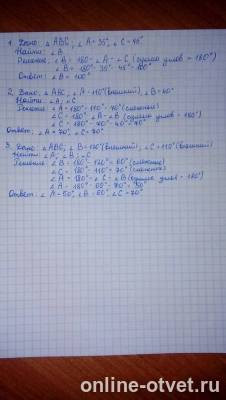 1. Дано: ∠ ABC; ∠ A = 35°, ∠ C = 45°
Найти: ∠ B
Решение: ∠ B = 180° - ∠ A - ∠ C (сумма углов = 180°)
∠ B = 180° - 35° - 45° = 100°
Ответ: ∠ B = 100°
2. Дано: ∠ ABC, ∠ A = 110° (внешний), ∠ B = 40°
Найти: ∠ A; ∠ C
Решение: ∠ A = 180° - 110° = 70° (смежные)
∠ C = 180° - ∠ A - ∠ B (сумма углов = 180°)
∠ C = 180° - 70° - 40° = 70°
Ответ: ∠ A = 70°, ∠ C = 70°
3. Дано: ∠ ABC; ∠ B = 120° (внешний); ∠ C = 110° (внешний)
Найти: ∠ A; ∠ B; ∠ C
Решение: ∠ B = 180° - 120° = 60° (смежные)
∠ C = 180° - 110° = 70° (смежные)
∠ A = 180° - ∠ C - ∠ B (сумма углов = 180°)
∠ A = 180° - 60° - 70° = 50°
Ответ: ∠ A = 50°, ∠ B = 60°, ∠ C = 70°
online-otvet.ru